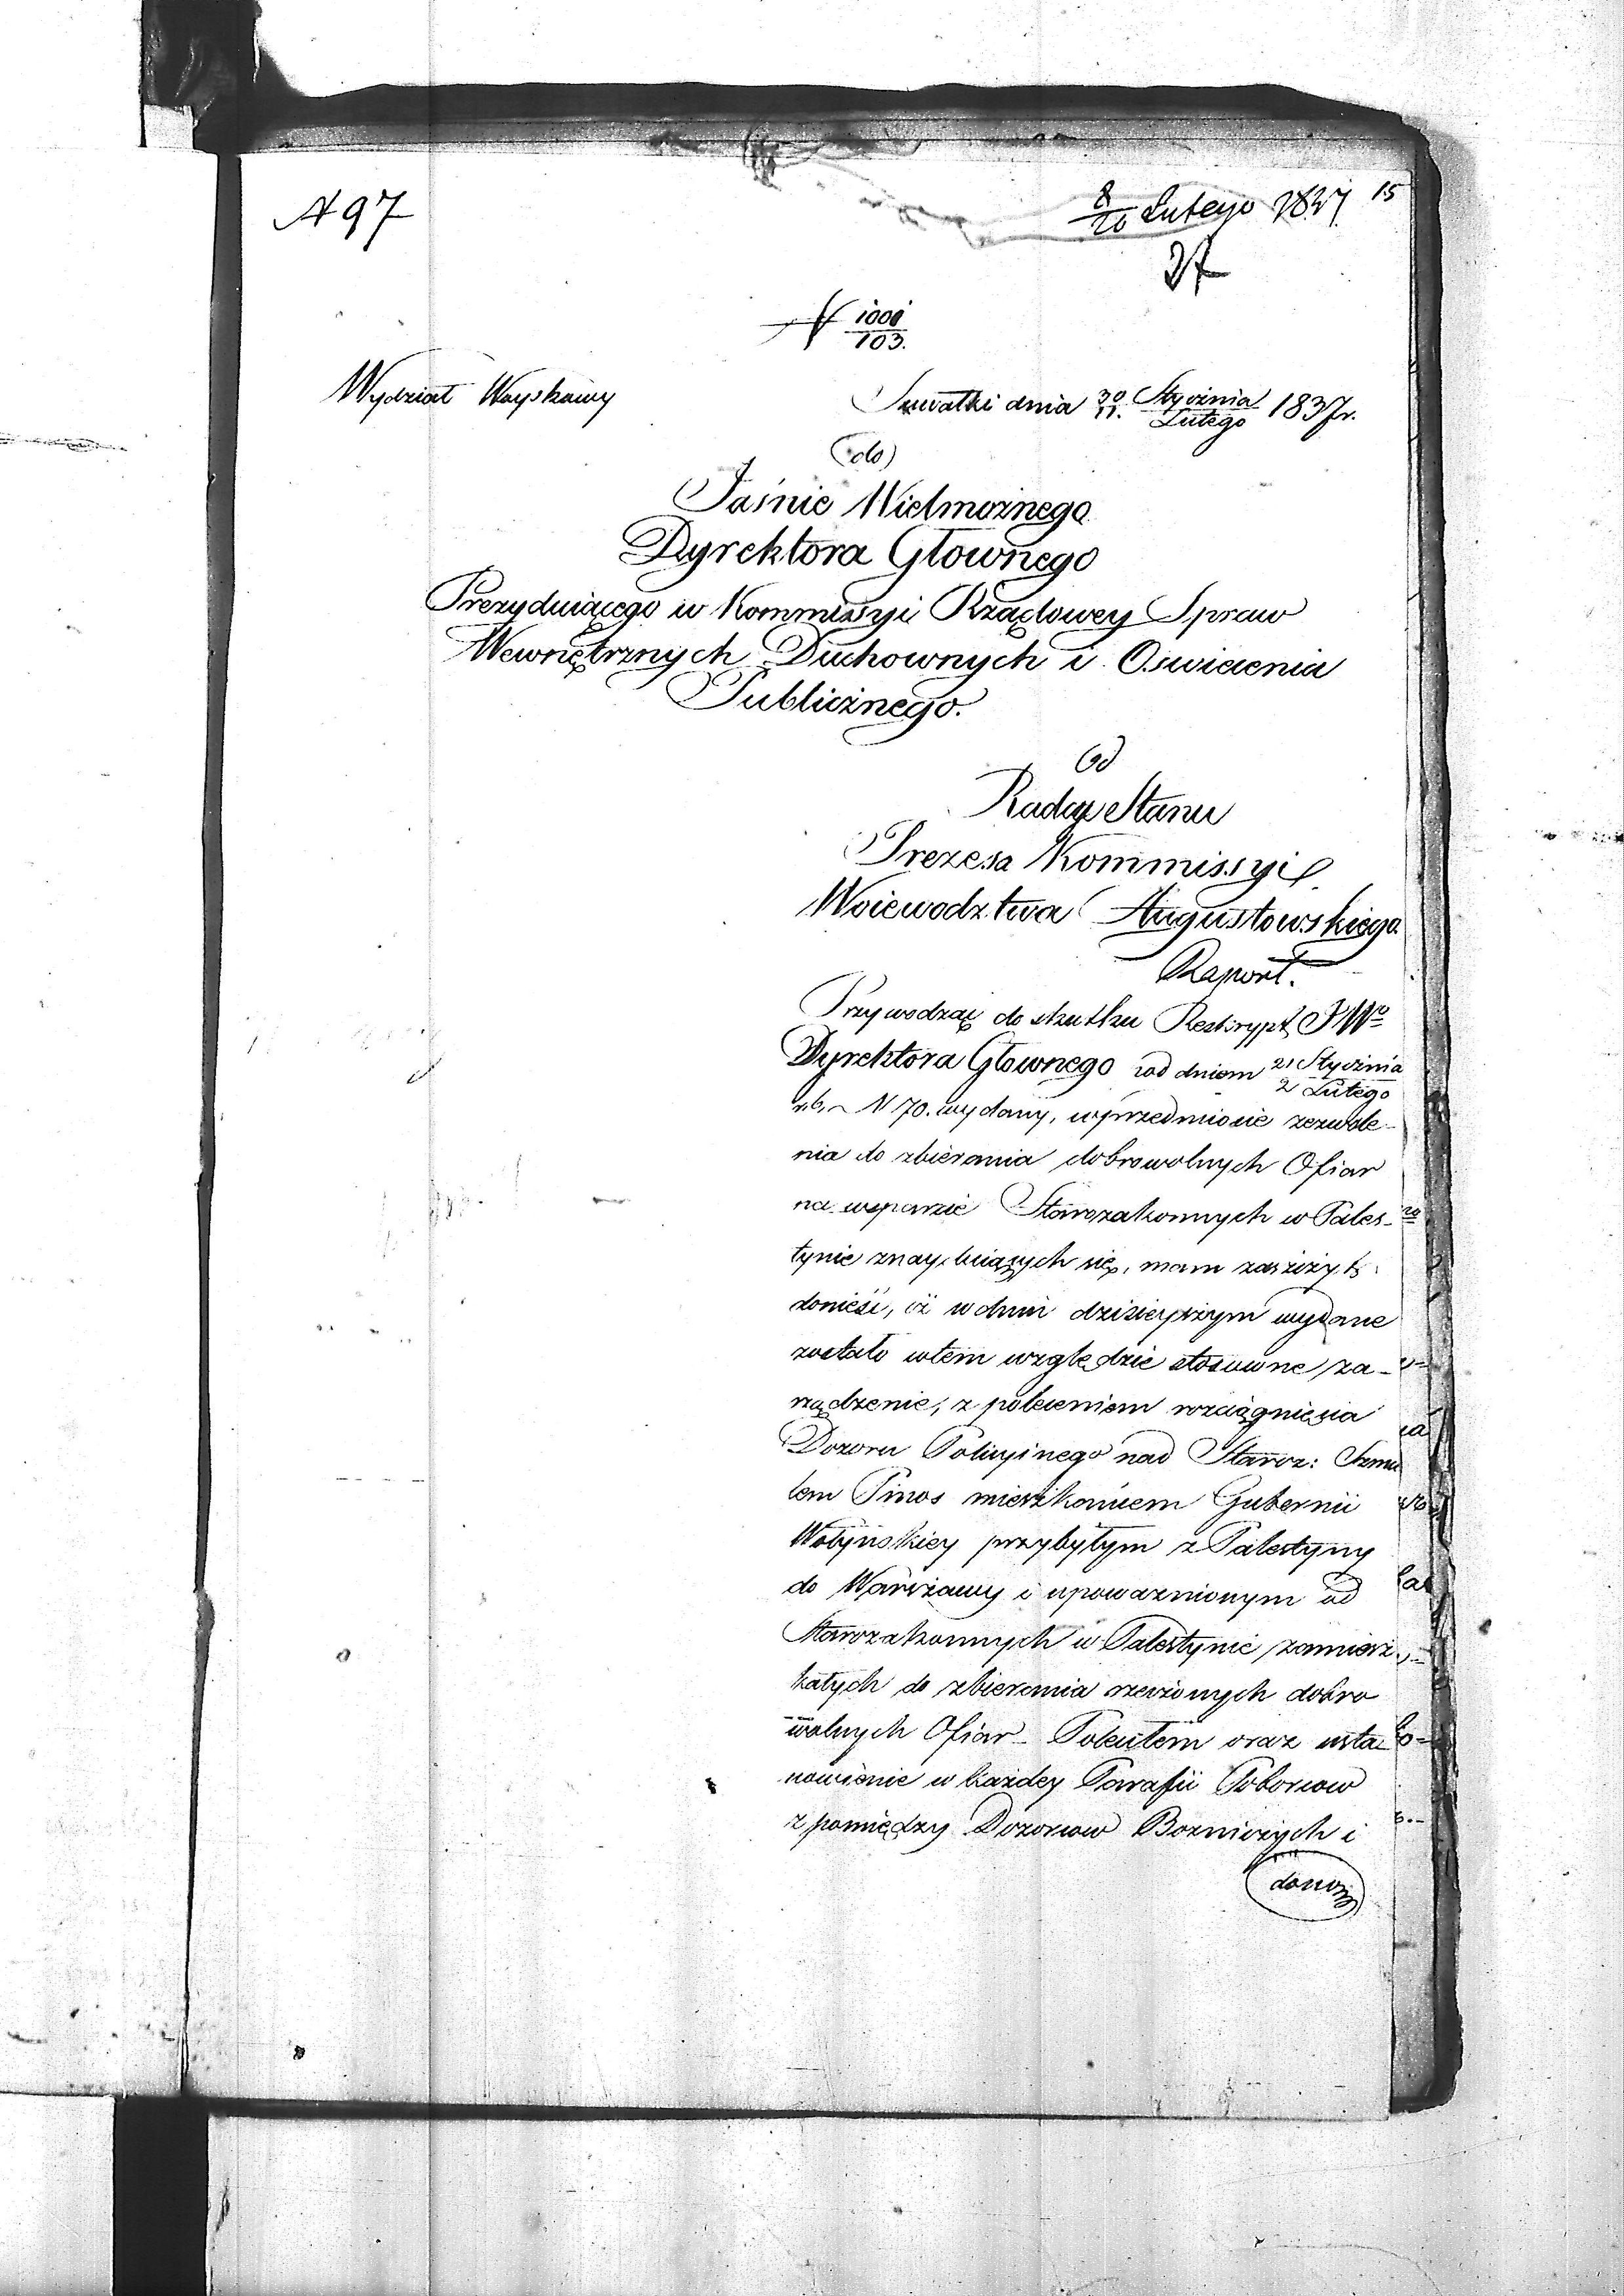 N 97
8/20 Lutego 1837. 15
N 1001/103.
Wydział Woyskowy
Suwałki dnia 30/11. Stycznia/Lutego 1837 r.
(do)
Jaśnie Wielmożnego
Dyrektora Głownego
Prezyduiącego w Kommissyi Rządowey Spraw
Wewnętrznych Duchownych i Oswiecenia
Publicznego.
Od
Radcy Stanu
Prezesa Kommissyi
Woiewodztwa Augustowskiego
Raport.
Przywodząc do skutku Reskrypt JWo
Dyrektora Głownego pod dniem 21/2 Stycznia/Lutego
r. b. N 70. wydany, w przedmiocie zezwole-
nia do zbierania dobrowolnych Ofiar
na wsparcie Starozakonnych w Pales-
tynie znayduiących się, mam zaszczyt
donieść, iż w dniu dzisieyszym wydane
zostało w tem względzie stosowne za-
rządzenie, z poleceniem rozciągnięcia
Dozoru Policyinego nad Staroz: Szmu
lem Pinos mieszkańcem Gubernii
Wołyńskiey przybyłym z Palestyny
do Warszawy i upoważnionym od
Starozakonnych w Palestynie zamiesz
kałych do zbierania rzeczonych dobro
wolnych Ofiar_ Poleciłem oraz usta
nowienie w każdey Parafii Poborcow
z pomiędzy Dozorcow Bozniczych i
donosz